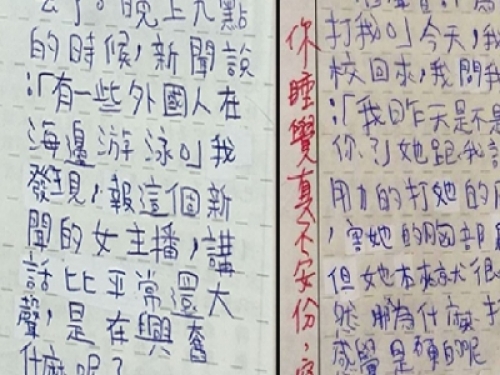 了。晚上九點
的時候，新聞說
：「有一些外國人在
海邊游泳。」我
發現，報這個新
聞的女主播，講
話比平常還大
聲，是在興奮
什麼呢？
你睡覺真不安份，
打我。」今天，我
校回來，我問我
：「我昨天是不是
你？」她跟我說
用力的打她的
，害她的胸部
但她本來就很
為什麼
感覺是硬的呢